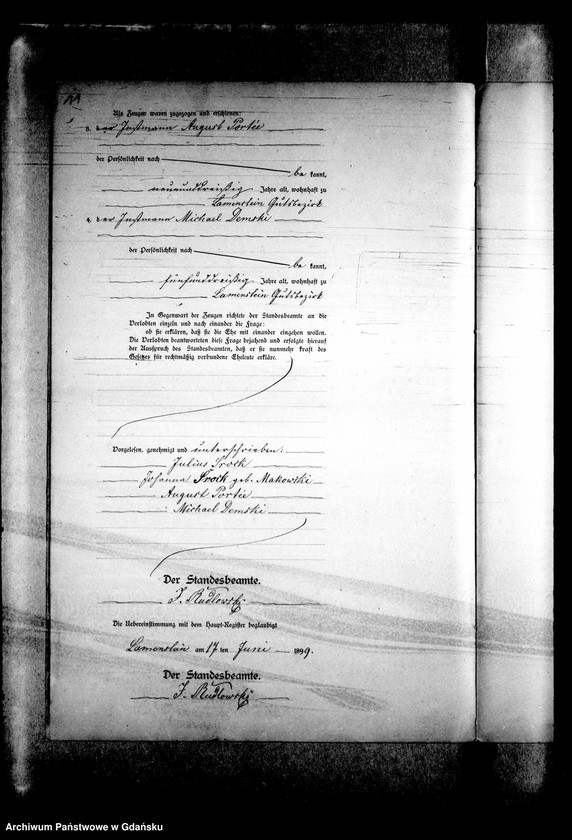 Als Zeugen waren zugezogen und erschienen:
3. der Instmann August Portée
der Persönlichkeit nach
be kannt,
neununddreißig Jahre alt, wohnhaft zu
Lamenstein Gutsbezirk
4. der Instmann Michael Demski
der Persönlichkeit nach
be kannt,
fünfunddreißig Jahre alt, wohnhaft zu
Lamenstein Gutsbezirk
In Gegenwart der Zeugen richtete der Standesbeamte an die
Verlobten einzeln und nach einander die Frage:
ob sie erklären, daß sie die Ehe mit einander eingehen wollen.
Die Verlobten beantworteten diese Frage bejahend und erfolgte hierauf
der Ausspruch des Standesbeamten, daß er sie nunmehr kraft des
Gesetzes für rechtmäßig verbundene Eheleute erkläre.
Vorgelesen, genehmigt und unterschrieben:
Julius
Johanna geb. Makowski
August Portée
Michael Demski
Der Standesbeamte.
J. Rudlowski
Die Uebereinstimmung mit dem Haupt-Register beglaubigt
Lamenstein am 17 ten Juni 1899.
Der Standesbeamte.
J. Rudlowski
Archiwum Państwowe w Gdańsku